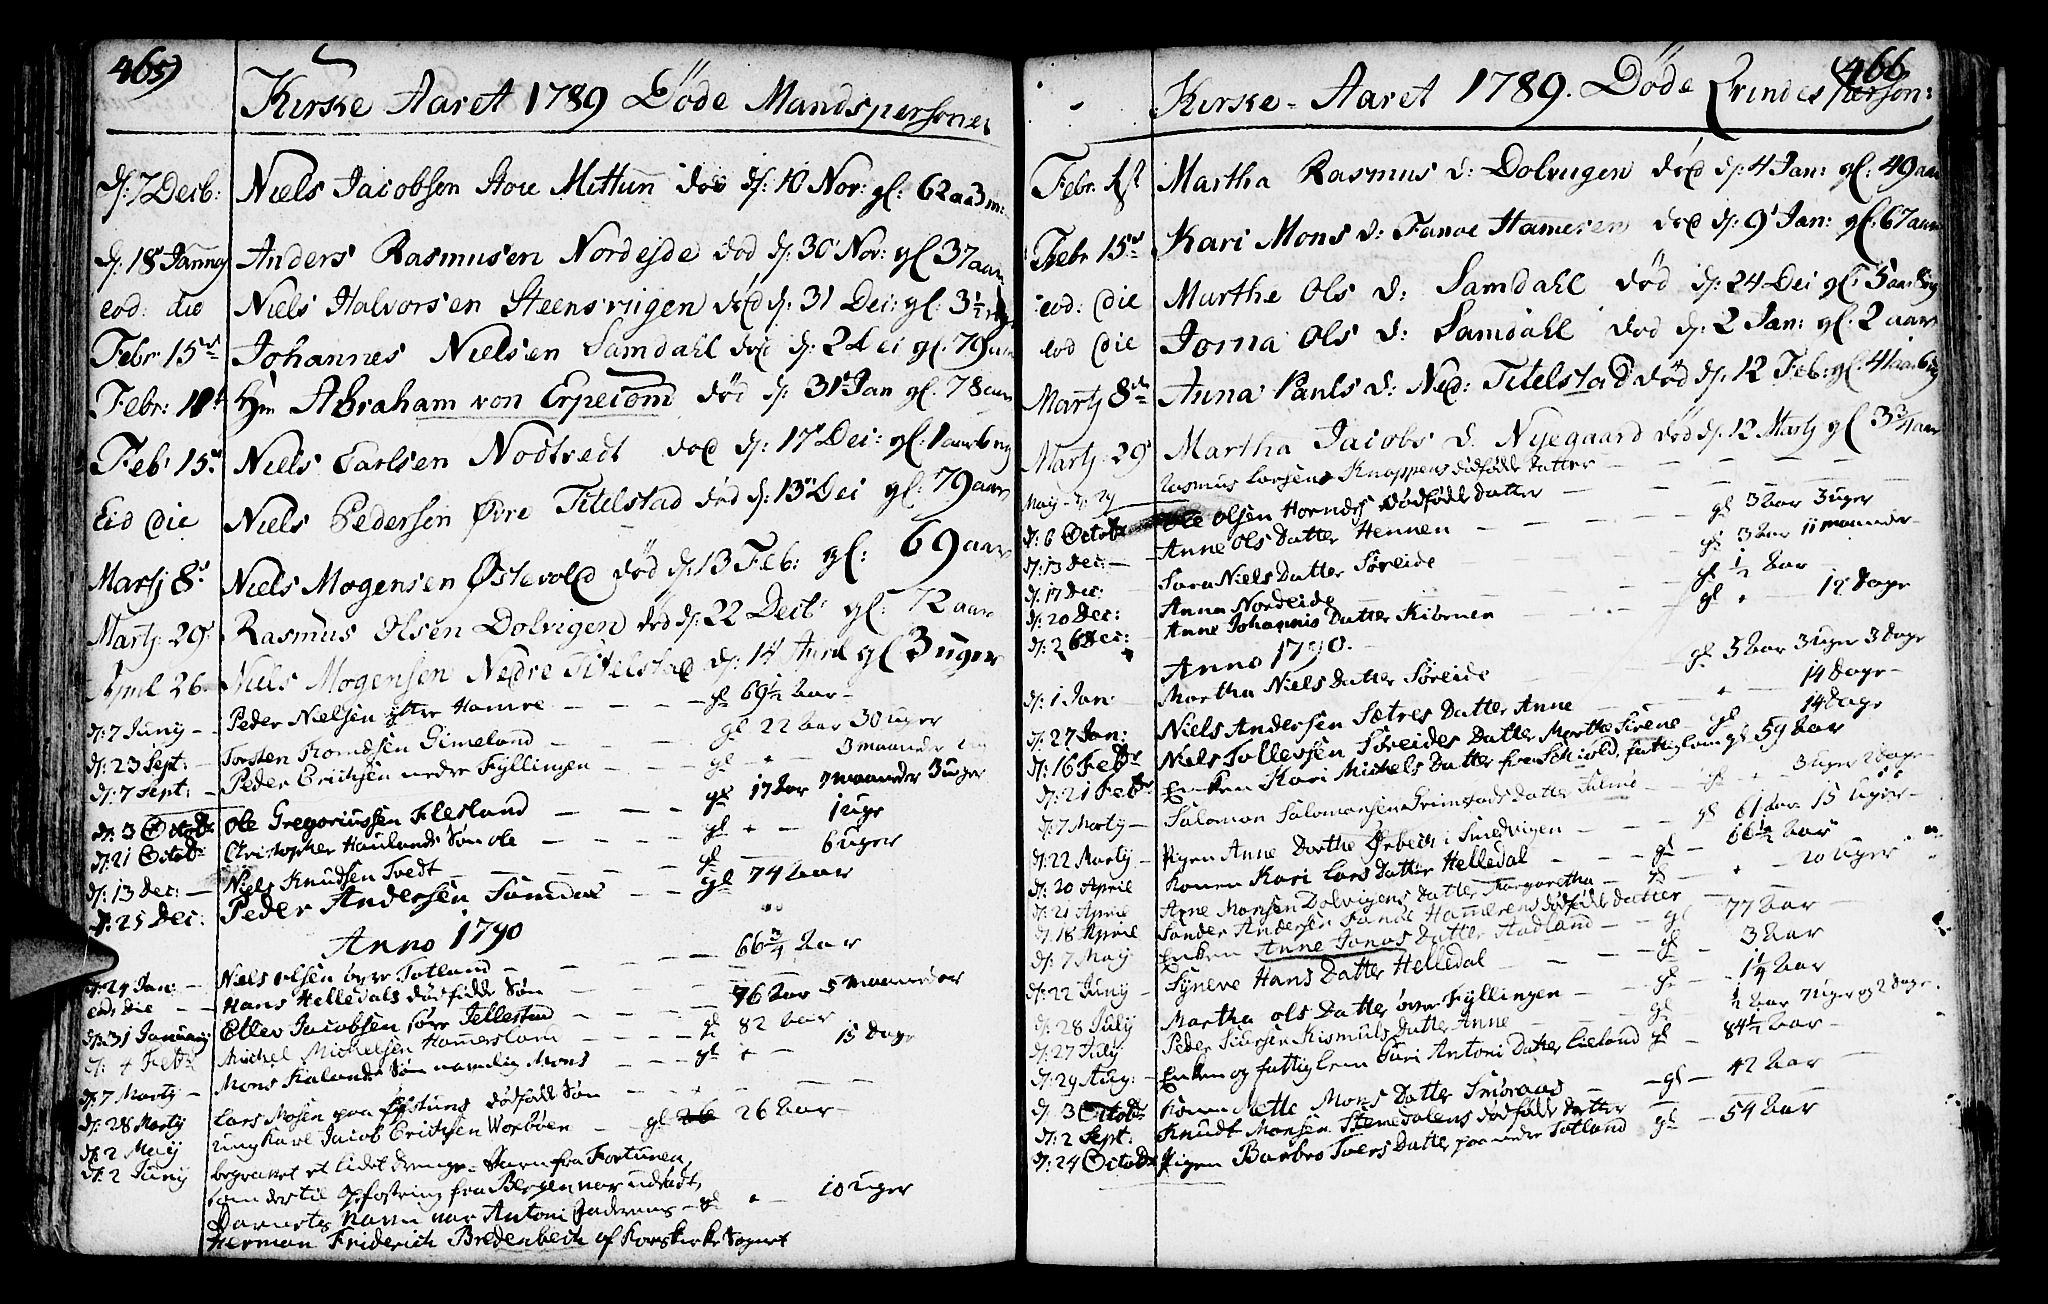 465)
Kirke Aaret 1789 Döde Mandspersoner
d: 7 Decb: Niels Jacobsen Store Mittun död d: 10 Nov: gl: 62 a 3 m:
d: 18 Januarÿ Anders Rasmusen Nordejde död d: 30 Nov: gl 37 aar
eod: die Niels Halvorsen Steensviigen död d: 31 Dec: gl: 3½
Febr 15 Johannes Nielsen Samdahl död d: 2 Dec gl. 79 aar
Febr: 18 Hr Abraham von Erpecom död d: 31 Jan gl. 78 aar
Feb: 15 Niels Carlsen Nodtvedt död d: 17 Dec: gl. 1 aar 6
Eid die Niels Pedersen Øvre Titelstad död d: 13 Dec gl: 79 aar
Martj 8 Niels Mogensen Østevold död d: 13 Feb: gl: 69 aar
Martj 29 Rasmus Olsen Dolvigen död d: 22 Decb: gl: 72 aar
April 26 Niels Mogensen Nedre Titelstad d: 14 April gl 3 uger
d: 7 Junÿ - Peder Nielsen Hamre - - - gl 69½ Aar -
d: 23 Sept: - Torsten Gimeland - - - gl 22 Aar 30 Uger
d: 7 Sept: - Peder Erichsen nedre Fyllingen - - - gl - 3 maaneder
d: 3 Octobr Ole Gregoriussen Flesland - - - gl 17 Aar 7 maaneder 3 uger
d: 21 Octobr Christopher Haulands Søn Ole - - - gl - 1 Uge
d: 13 Dec: - Niels Knudsen Tvedt - - - gl - 6 Uger
d: 25 Dec: Peder Andersen Samdal - - gl 74 Aar
Anno 1790
d: 24 Jan: - Niels Olsen övre Totland - - - 66¾ Aar
eod die - Hans Helledals dødfødde Søn - - -
d: 31 Januarÿ Ellev Jacobsen Tellestad - - - gl 76 Aar 5 Maaneder
d: 4 Febr Michel Michelsen Hamersland - - - gl 82 Aar
d: 7 Martÿ - Mons Søn navnlig Mons - - gl - 15 Dage
d: 28 Martÿ Lars Mosen paa dødfødde Søn
d: 2 Maÿ Ungkarl Jacob Erichsen - gl 26 Aar -
d: 2 Junÿ begravet et lidet Drenge-Barn fra Fortunen,
som der til Opfostring fra Bergen var udsadt,
Barnets Navn var Antoni - gl - 10 Uger
Herman Friderich Bredenbech af Korskirke Sognet
466
Kirke-Aaret 1789. Döde Qvindes Person:
Febr. 1st Martha Rasmus d: Dolvigen död d: 4 Jan: gl: 49 aar
Febr 15 Kari Mons d: Fanöe Hameren död d: 9 Jan: gl. 67 aar
eod: die Marthe Ols d: Samdahl död d: 24 Dec gl: 5 aar
eod die Jorna Ols d: Samdahl död d: 2 Jan: gl: 2 aar
Martj 8 Anna Pauls d: Ned: Titelstad död d: 12 Feb: gl: 41 aar
Martj 29 Martha Jacobs d. Nyegaard död d: 12 Martj gl 3¾ aar
Maÿ d: 24 Rasmus Larsens Knappens dødfødde Datter - - -
d: 6 Octobr Ole Olsen Hornæs dødfødde Datter -
d: 13 Dec: - Anne Ols Datter Hennen - - - gl 3 Aar 3 uger
d: 17 Dec: Sara Niels Datter Søreide - - - gl 3 Aar 11 maaneder -
d: 20 Dec: Anna Nordeide - - - gl ½ Aar -
d: 26 Dec: Anne Johannis Datter - - - gl - 12 Dage
Anno 1790.
d: 1 Jan: Martha Niels Datter Søreide - gl 5 Aar 3 uger 3 Dage
d: 27 Jan: Niels Andersen Sætres Datter Anne - 14 Dage -
d: 16 Febr Niels Tollefsen Søreides Datter Marthe Sirene - gl - 14 Dage
d: 21 Febr Enken Kari Michels Datter fra Schiold, fattiglem gl 59 Aar
d: 7 Martÿ - Salomon Salomonsen Grimstads Datter - gl - 3 uger 2 Dage -
d: 22 Martÿ - Pigen Anne Dorthe i Smedvigen - - - gl 61 Aar 15 Uger -
d: 20 April Konen Kari Lars Datter Helledal - - - gl - 66½ Aar
d: 21 April Arne Monsen Dolvigens Datter Margaretha - gl - 20 Uger
d: 18 April Sander Andersen Fanöe Hamerens dødfødde Datter -
d: 7 Maÿ Enken Anne Jonas Datter Aadland - gl 77 Aar -
d: 22 Junÿ - Synneve Hans Datter Helledal - - gl 3 Aar
d: 28 Julÿ Martha Ols Datter övre Fyllingen - gl - 1¼ Aar
d: 27 Julÿ Peder Siursen Kismuls Datter Anne - - gl ½ Aar 7 Uger og 2 Dage.
d: 29 Aug: - Enken og fattiglem Guri Antoni Datter Lieland gl - 84½ Aar -
d: 3 Octobr Konen Mette Mons Datter Smöraas - - gl - 42 Aar -
d: 2 Sept: Knudt Monsen Stenedalens dødfødde Datter
d: 24 Octobr Pigen Barbro Ivers Datter paa nedre Totland gl - 54 Aar